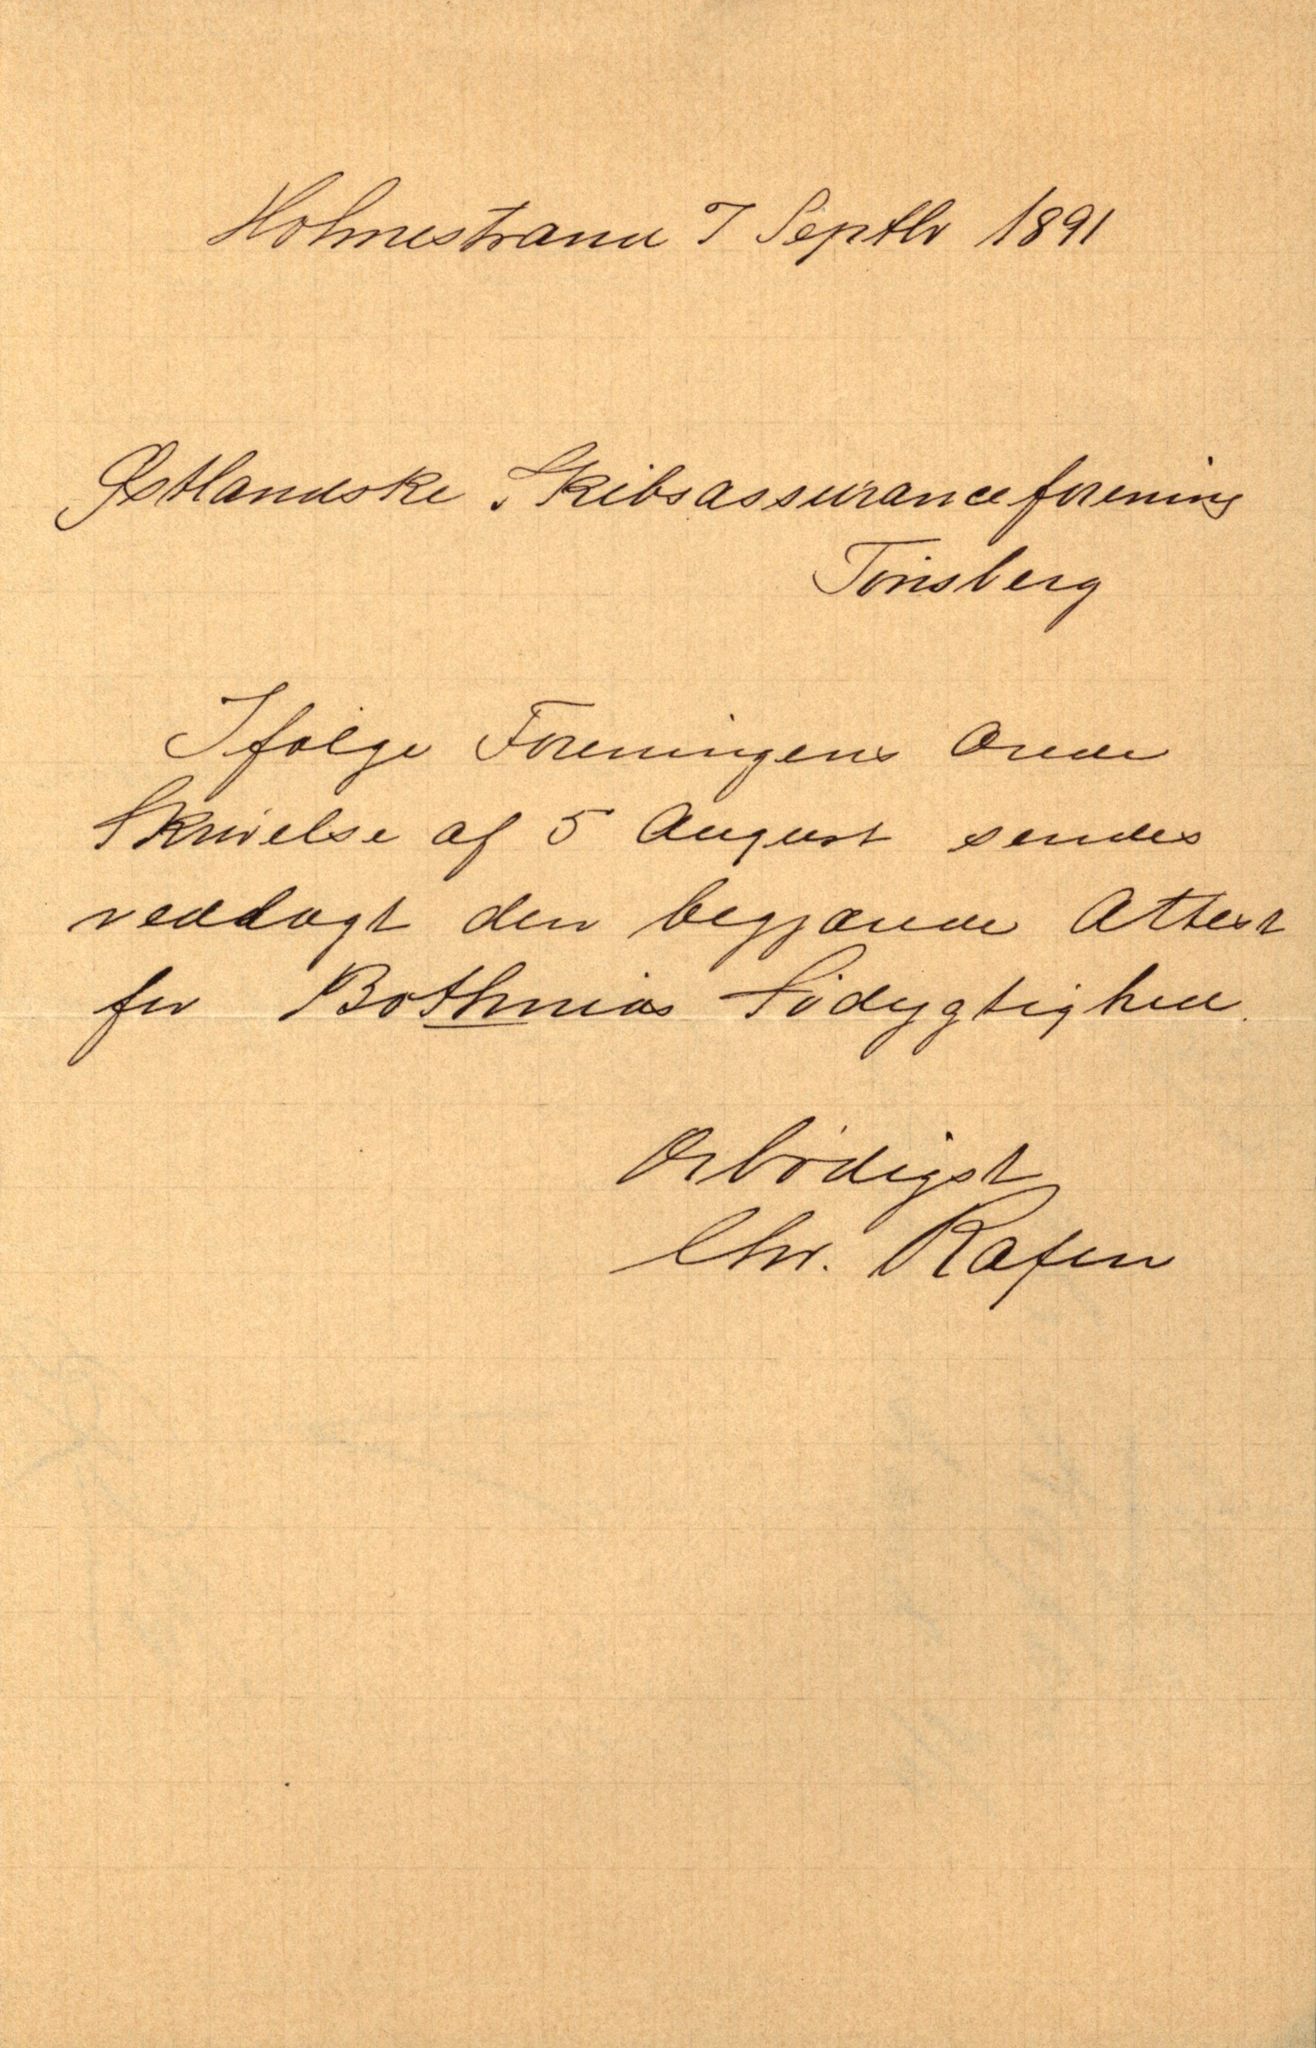 Holmestrand 7 Septbr 1891
Østlandske Skibsassuranceforening
Tönsberg
Ifølge Foreningens ærede
Skrivelse af 5 August sendes
vedlagt den begjærede Attest
for Bothnias Södygtighed.
Ærbödigst
Chr. Rafen